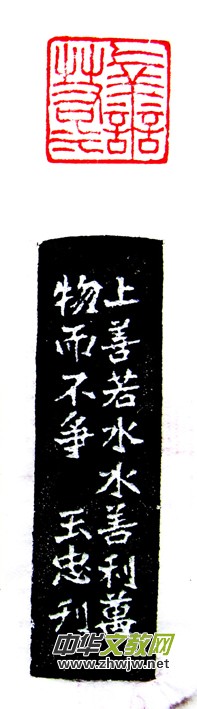 上善若水
上善若水水善利萬
物而不爭 玉忠
中华文教网
www.zhwjw.net